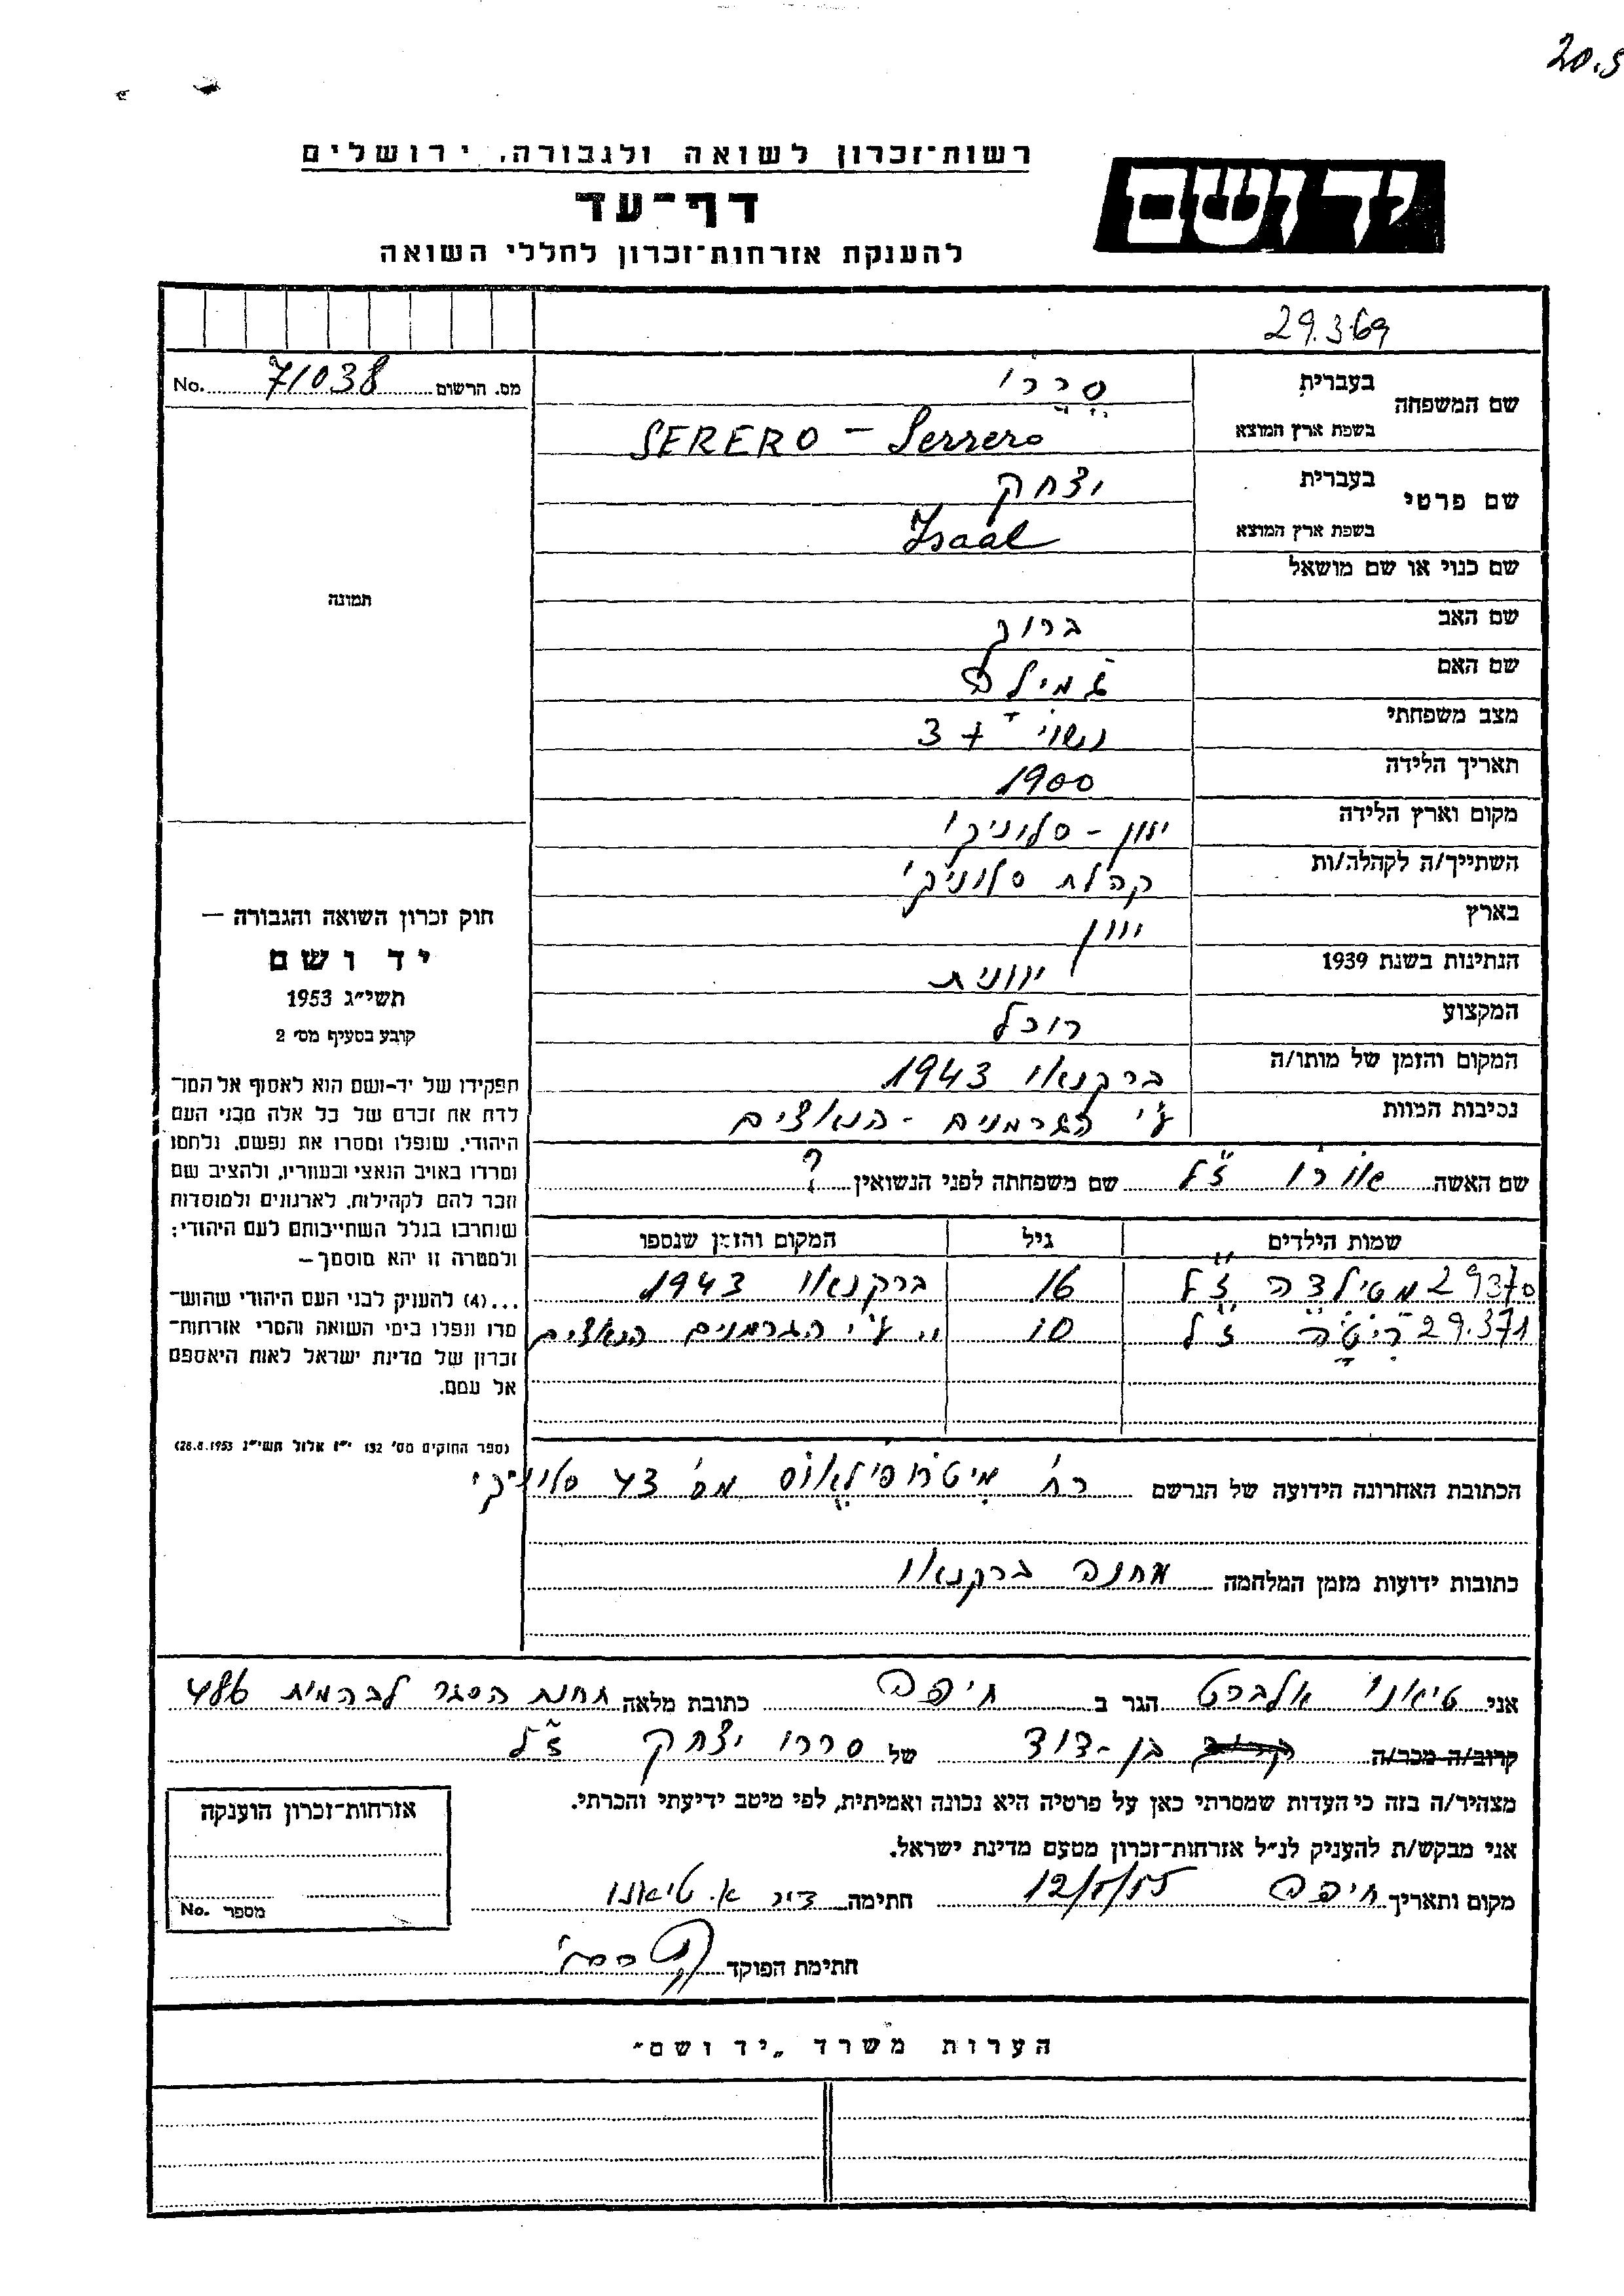 20.5
רשות־זכרון לשואה ולגבורה, ירושלים
יד ושם
דף־עד
להענקת אזרחות־זכרון לחללי השואה
29.369
מס. הרשום 71038 No.
שם המשפחה
בעברית סררו
בשפת ארץ המוצא SERERO - Serrero
שם פרטי
בעברית יצחק
בשפת ארץ המוצא Isaal
שם כנוי או שם מושאל
שם האב ברוך
שם האם ג'מילה
מצב משפחתי נשוי + 3
תאריך הלידה 1900
מקום וארץ הלידה יוון - סלוניקי
השתייך/ה לקהלה/ות קהלת סלוניקי
בארץ יוון
הנתינות בשנת 1939 יוונית
המקצוע רוכל
המקום והזמן של מותו/ה ברקנאו 1943
נסיבות המוות ע"י הגרמנים - הנאצים
שם האשה ז"ל שם משפחתה לפני הנשואין ?
שמות הילדים גיל המקום והזמן שנספו
29370 מטילדה ז"ל 16 ברקנאו 1943
29.371 ריטה ז"ל 10 " ע"י הגרמנים הנאצים
הכתובת האחרונה הידועה של הנרשם רח' מס' 43 סלוניקי
כתובות ידועות מזמן המלחמה מחנה ברקנאו
תמונה
חוק זכרון השואה והגבורה —
יד ושם
תשי"ג 1953
קובע בסעיף מס' 2
תפקידו של יד-ושם הוא לאסוף אל המו־
לדת את זכרם של כל אלה מבני העם
היהודי, שנפלו ומסרו את נפשם, נלחמו
ומרדו באויב הנאצי ובעוזריו, ולהציב שם
וזכר להם לקהילות, לארגונים ולמוסדות
שנחרבו בגלל השתייכותם לעם היהודי;
ולמטרה זו יהא מוסמך —
...(4) להעניק לבני העם היהודי שהוש־
מדו ונפלו בימי השואה והמרי אזרחות־
זכרון של מדינת ישראל לאות היאספם
אל עמם.
(ספר החוקים מס' 132 י"ז אלול תשי"ג 28.8.1953)
אני טיאנו אלברט הגר ב חיפה כתובת מלאה תחנת הסגר לבהמות 486
קרוב/ה מכר/ה בן-דוד של סררו יצחק ז"ל
מצהיר/ה בזה כי העדות שמסרתי כאן על פרטיה היא נכונה ואמיתית, לפי מיטב ידיעתי והכרתי.
אני מבקש/ת להעניק לנ"ל אזרחות־זכרון מטעם מדינת ישראל.
מקום ותאריך חיפה 12/5/55 חתימה א. טיאנו
חתימת הפוקד
אזרחות־זכרון הוענקה
מספר No.
הערות משרד „יד ושם"